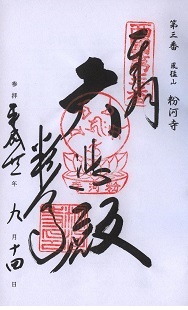 第三番 風猛山 粉河寺
奉拝
大悲殿
粉河寺
参拝 平成廿一年 九月十四日